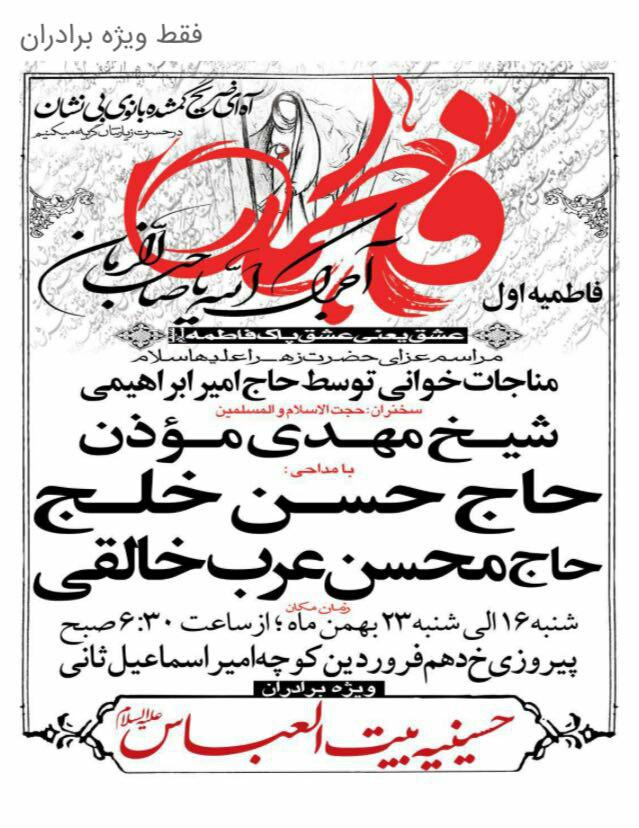 فقط ویژه برادران
آه ای ضریح گمشده بانوی بی نشان
در حسرت زیارتتان گریه میکنیم
فاطمه
آجرک الله یا صاحب الزمان
فاطمیه اول
عشق یعنی عشق پاک فاطمه
مراسم عزای حضرت زهرا علیها سلام
مناجات خوانی توسط حاج امیر ابراهیمی
سخنران: حجت الاسلام و المسلمین
شیخ مهدی مؤذن
با مداحی:
حاج حسن خلج
حاج محسن عرب خالقی
زمان مکان
شنبه ۱۶ الی شنبه ۲۳ بهمن ماه ؛ از ساعت ۶:۳۰ صبح
پیروزی خ دهم فروردین کوچه امیر اسماعیل ثانی
ویژه برادران
حسینیه بیت العباس علیه السلام